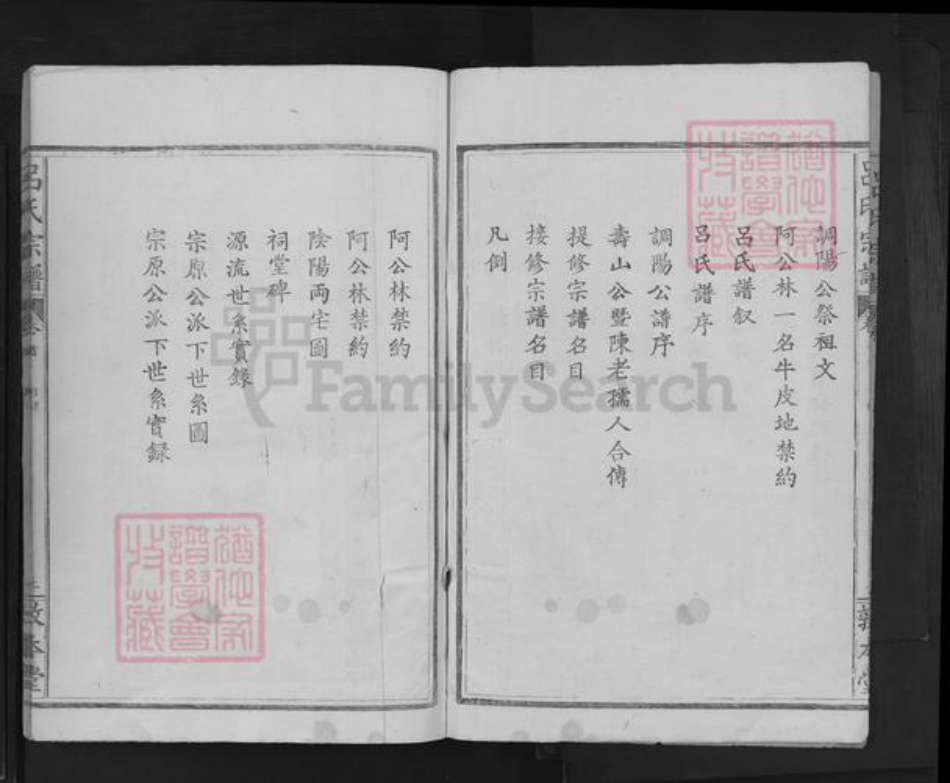 調陽公祭祖文
阿公林一名牛皮地禁約
呂氏譜叙
呂氏譜序
調陽公譜序
壽山公暨陳老孺人合傳
提修宗譜名目
接修宗譜名目
凡倒
呂氏宗譜
敦本堂
阿公林禁約
阿公林禁約
陰陽両宅圖
祠堂碑
源流世系實錄
宗原公派下世系圖
宗原公派下世系實錄
呂氏宗譜
敦本堂
FamilySearch
譜學會
收藏
譜學會
收藏